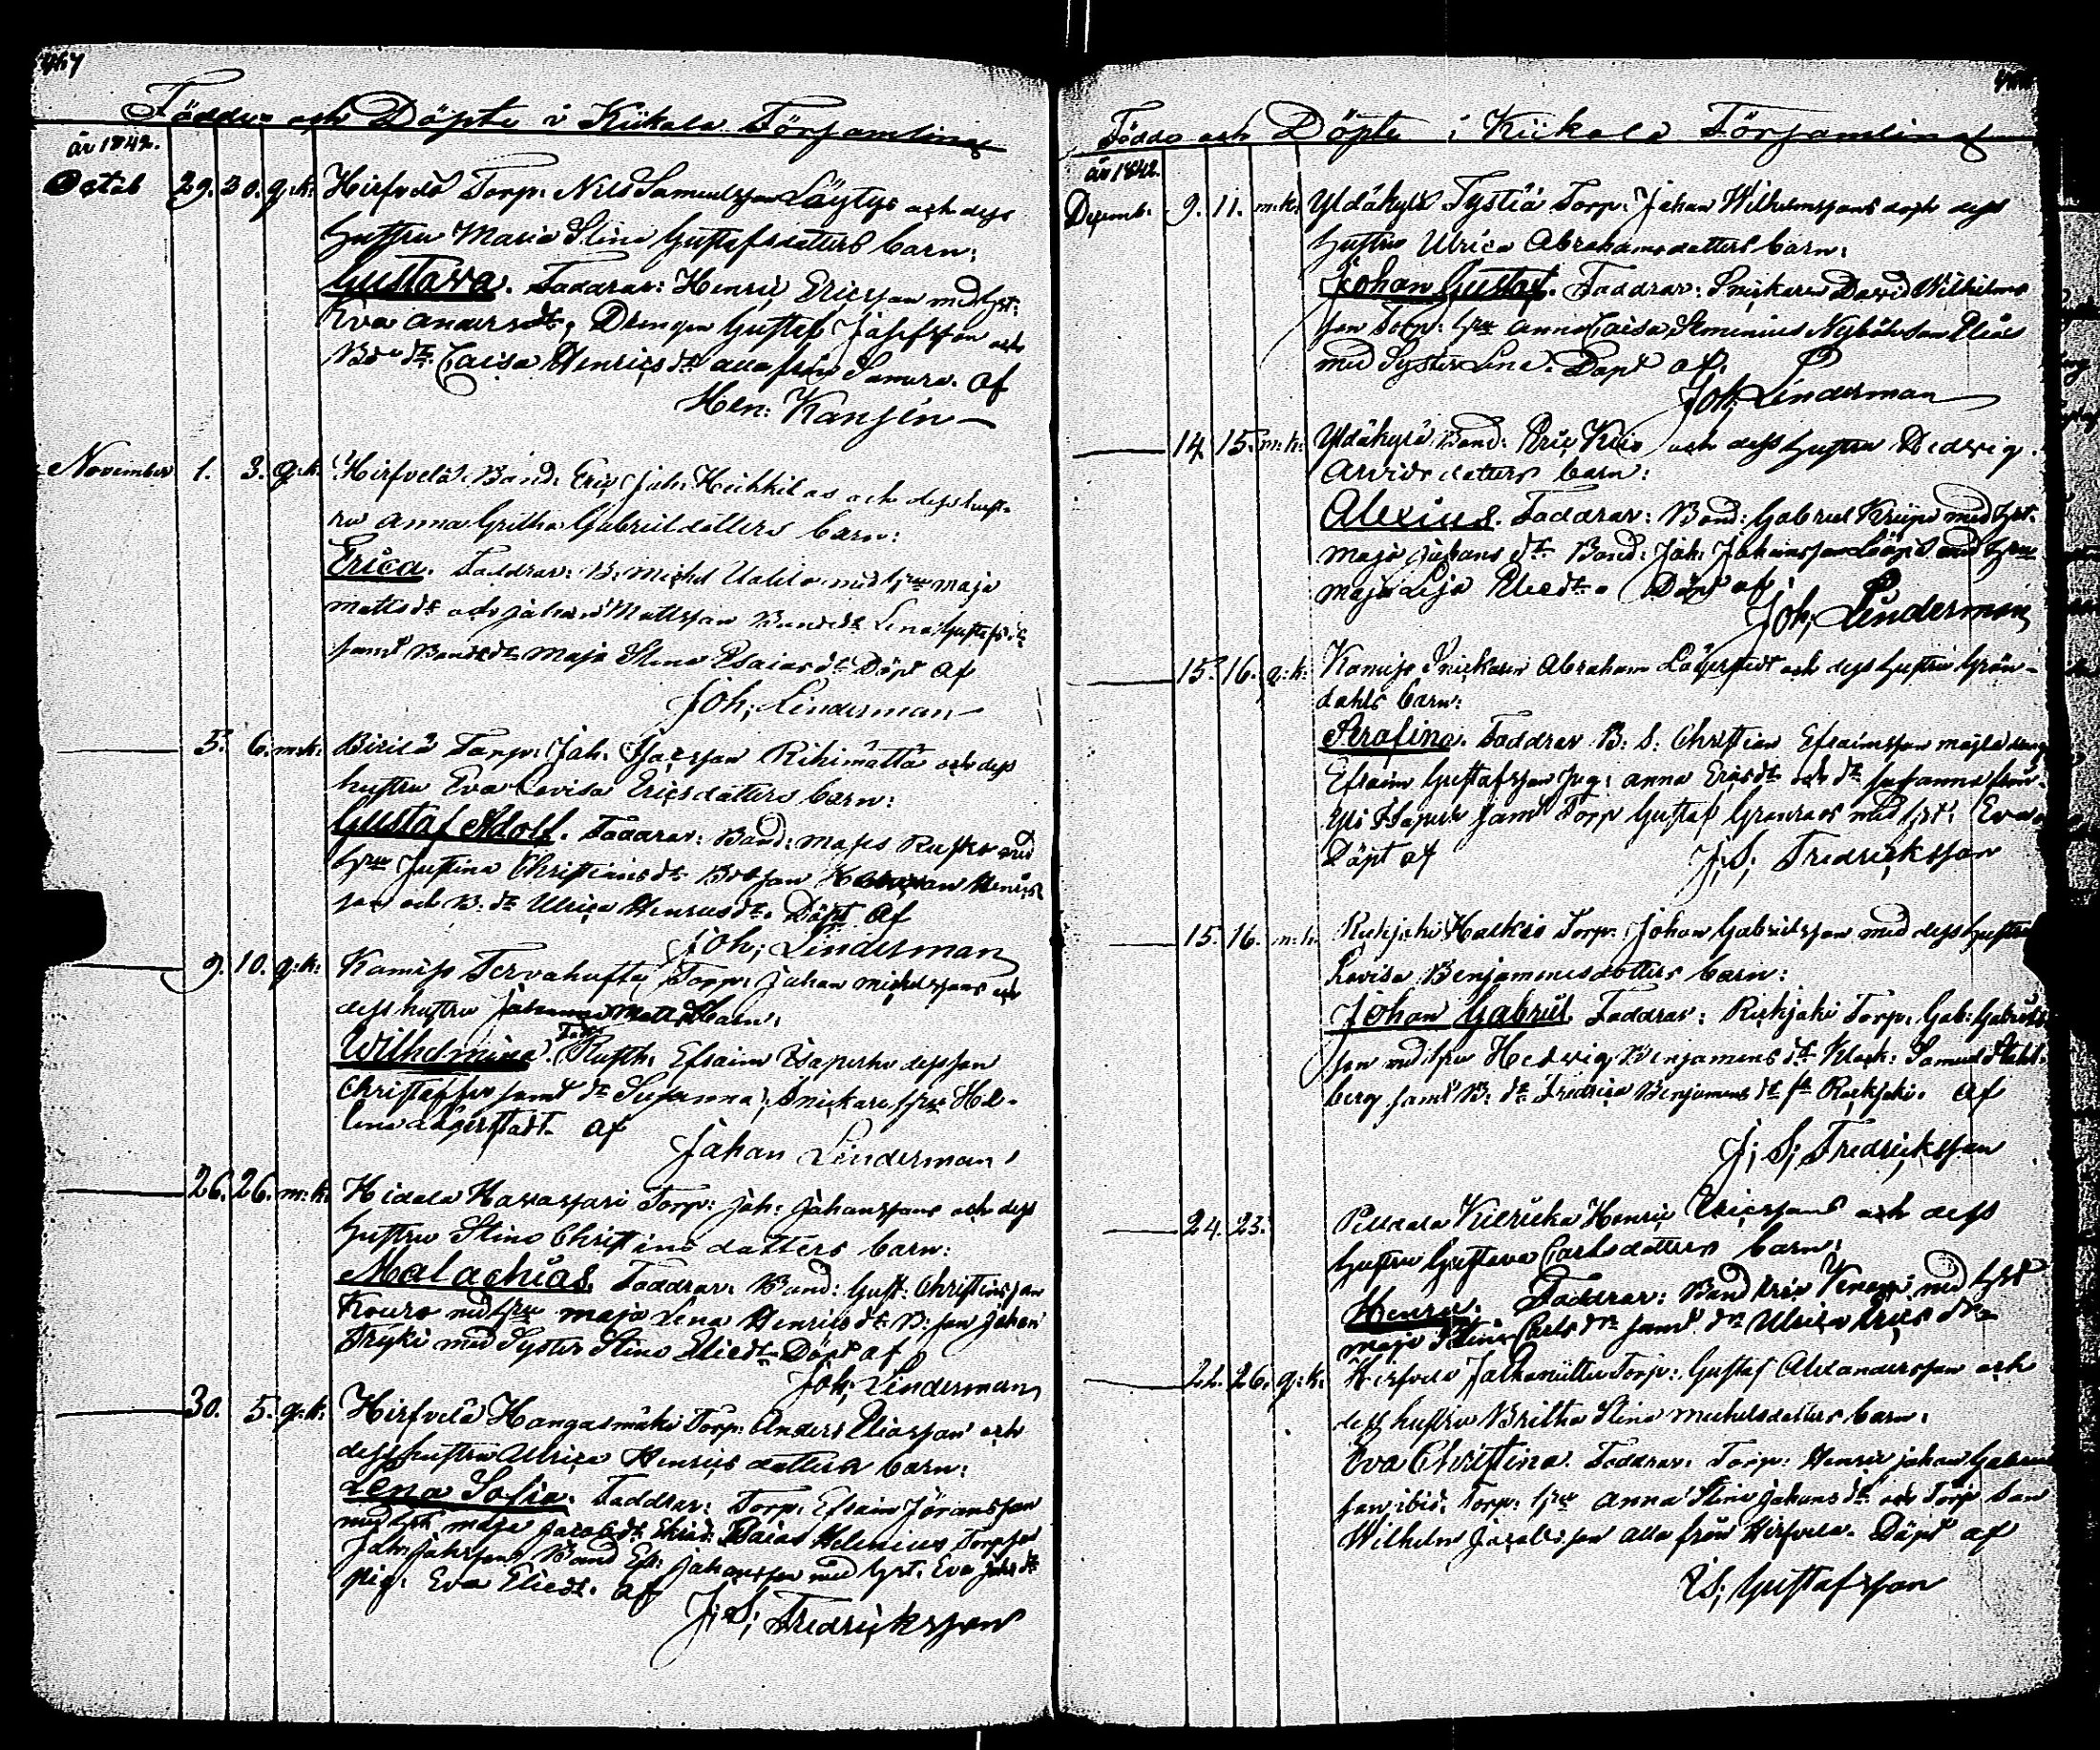 Födde och Döpte i Kiikala Församling
år 1842.
Octob 29. 30. q.k. Hirfvelä Torp: Nils Samuelsson Löytys och dess
hustru Maria Stina Gustafsdotters barn:
Gustava. Faddrar: Henric Ericsson med hst:
Eva Andersdr, Drengen Gustaf Josefsson och
Bdedr Caisa Henricsdr alla från Samma. Af
Hen: Kansén
November 1. 3. q.k. Hirfvelä Bond. Eric Joh. Heickilas och dess hust-
ru Anna Gritha Gabrielsdotters barn:
Erica. Faddrar: B. Michel Uotila med hru Maja
Mattsdr och Johan Mattsson Bondedr Lena Gustafsdr
samt Bondedr Maja Stina Esaiasdr Döpt af
Joh; Linderman
5. 6. m.k. Pirilä Torp: Joh. Isacsson Rihimätta och dess
hustru Eva Lovisa Ericsdotters barn:
Gustaf Adolf. Faddrar: Bond: Moses Rusko med
hru Justina Christiansdr Bdeson Henrics
son och B. dr Ulrica Henricsdr. Döpt af
Joh; Linderman
9. 10. q.k. Komiso Tervahufta Torp: Johan Michelssons och
dess hustru Johanna Mattsdr barn:
Wilhelmina. Fadd: Rusth. Efraim Isaperhe dess son
Christoffer samt dr Susanna; Snickare hru He-
lena Lägerstädt. Af
Johan Linderman
26. 26. m.k. Hidola Havassari Torp: Joh: Johanssons och dess
hustru Stina Christinsdotters barn:
Malachias. Faddrar: Bond: Gust: Christinsson
Kouro med hru Maja Lena Henricsdr B: son Johan
Fryki med Syster Stina Eliedr Döpt af
Joh; Linderman
30. 5. q.k. Hirfvelä Hongasmäki Torp: Anders Eliasson och
dess hustru Ulrica Henricsdotters barn:
Lena Sofia. Faddrar: Torp: Efraim Jöransson
med hst Maja Jacobsdr Esaias Helenius Torpson
Joh: Johsson Bond Efr: Johansson med hst: Eva Johsdr
pig: Eva Eliedr. Af
J; S; Fredricksson
Födde och Döpte i Kiikala Församling
år 1842.
Decemb. 9. 11. m.k. Yldäkylä Tystiä Torp: Johan Wilhelmssons och dess
hustru Ulrica Abrahamsdotters barn:
Johan Gustaf. Faddrar: Snickare David Wilhelms
son Torp: hru Anna Caisa Stenenius Nybök Son Elias
med Syster Lena. Döpt af
Joh; Linderman
14. 15. m.k. Yldäkylä Bond: Eric Krio och dess hustru Hedvig
Arvidsdotters barn:
Alexius. Faddrar: Bond: Gabriel Kriipi med hst.
Maja Juhansdr Bond: Joh. Johansson Lööpä med hru
Maja Lisa Eliedr. Döpt af
Joh; Linderman
15. 16. q.k. Komiso Snickaren Abraham Lägerstedt och dess hustru Grön-
dahls barn:
Serafina. Faddrar B. S: Christian Efraimsson dreng
Efraim Gustafsson pig: Anna Ericsdr och dr Susanna från
Isapere samt Torp Gustaf Grönroos med hst: Eva
Döpt af J; S; Fredricksson
15. 16. m.k. Reckjoki Halkis Torp: Johan Gabrielsson med dess hustru
Lovisa Benjaminsdotters barn:
Johan Gabriel. Faddrar: Reckjoki Torp: Gab: Gabriels
son med hru Hedvig Benjaminsdr Klock: Samuel Stahl-
berg samt B: dr Fredrica Benjaminsdr fr Reckjoki. Af
J; S; Fredricksson
24. 23. Pelldola Henric Ericssons och dess
hustru Gustava Carlsdotters barn:
Henric. Faddrar: Bond Eric med hst
Maja Stina Carlsdr samt dr Ulrica Ericsdr
22. 26. q.k. Hirfvelä Torp: Gustaf Alexandersson och
dess hustru Britha Stina Michelsdotters barn:
Eva Christina. Faddrar: Torp: Henric Johan Gabriel
son ibid. Torp: hru Anna Stina Johansdr och Torp Son
Wilhelm Jacobsson alla från Hirfvelä. Döpt af
Gustafsson